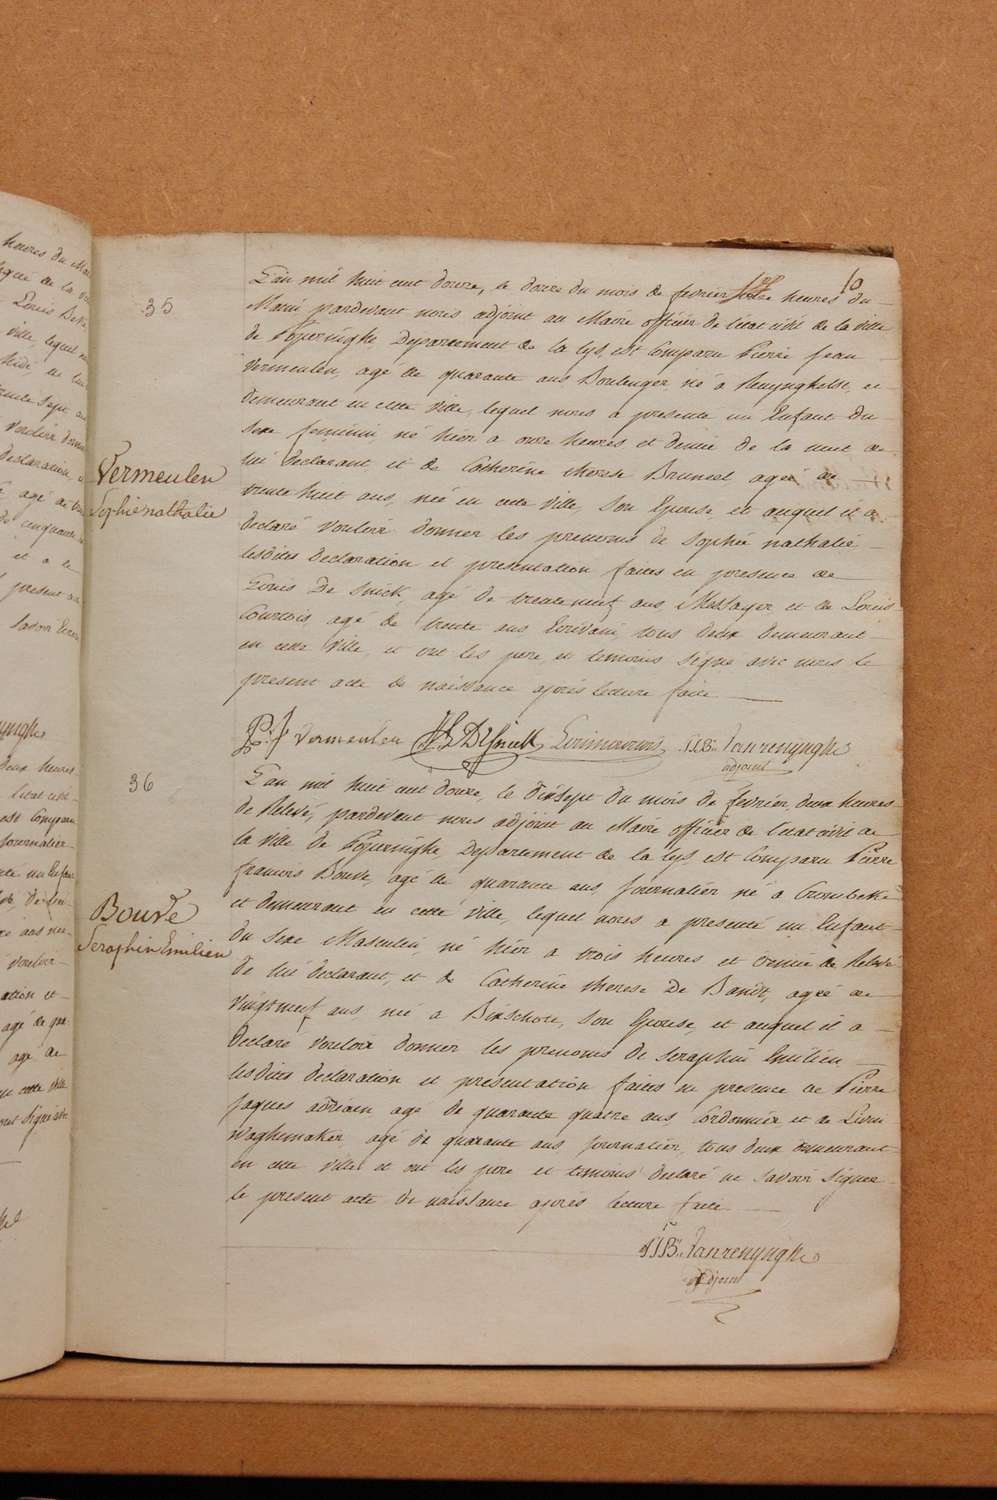 10
35
L'an mil huit cent douze, le douze du mois de fevrier heures du
Matin pardevant nous adjoint au Maire officier de l'état civil de la ville
de Poperinghe Departement de la Lys, est Comparu Pierre Jean
Vermeulen, agé de quarante ans Boulenger né à Renynghelst, et
demeurant en cette ville, lequel nous a presenté un Enfant du
Sexe feminin, né hier a onze heures et demie de la nuit de
lui declarant, et de Catherine therese Bruneel agée de
trente huit ans, née en cette ville, son Epouse et auquel il a
declaré vouloir donner les prenoms de Sophie nathalie
lesdites declaration et presentation faites en presence de
Louis De Snick, agé de trente neuf ans, Messager et de Louis
Courtois agé de trente ans Ecrivain, tous deux demeurant
en cette ville, et ont les pere, et temoins signé avec nous le
present acte de naissance après lecture faite
Vermeulen
Sophie nathalie
P: J Vermeulen L DeSnick J.B. Vanrenynghe
adjoint
36
L'an mil huit cent douze, le dixsept du mois de fevrier, deux heures
de Relevé, pardevant nous adjoint au Maire officier de l'etat civil de
la ville de Poperinghe, Departement de la Lys, est Comparu Pierre
francois Bouve, agé de quarante ans journalier né à Crombeke
et demeurant en cette ville, lequel nous a presenté un Enfant
du Sexe Masculin, né hier a trois heures et demie de Relevé
de lui declarant, et de Catherine therese De Bandt, agée de
vingtneuf ans née à Bixschote, son Epouse, et auquel il a
declaré vouloir donner les prenoms de Seraphin Emilien
lesdites declaration et presentation faites en presence de Pierre
Jaques adriaen agé de quarante quatre ans Cordonnier et de Livin
Waghemaker agé de quarante ans journalier, tous deux demeurant
en cette ville et ont les pere et temoins declaré ne savoir signer
le present acte de naissance après lecture faite
Bouve
Seraphin Emilien
J.B. Vanrenynghe
adjoint